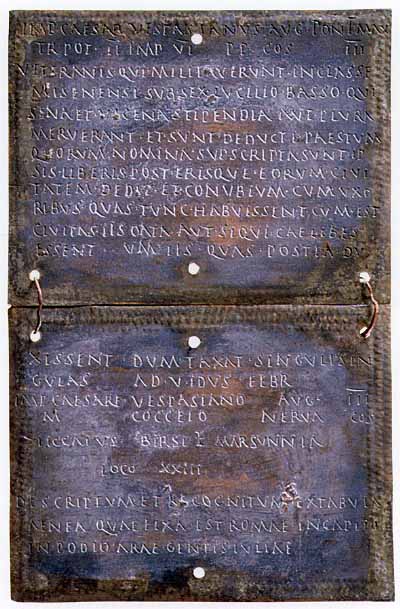 IMP CAESAR VESPASIANVS AVG PONT MAX
TR POT II IMP VI P P COS III
VETERANIS QVI MILITAVERVNT IN CLASSE
MISENENSI SVB SEX LVCILIO BASSO QVI
SENA ET VICENA STIPENDIA AVT PLVRA
MERVERANT ET SVNT DEDVCTI PAESTVM
QVORVM NOMINA SVBSCRIPTA SVNT IP
SIS LIBERIS POSTERISQVE EORVM CIVI
TATEM DEDIT ET CONVBIVM CVM VXO
RIBVS QVAS TVNC HABVISSENT CVM EST
CIVITAS IIS DATA AVT SIQVI CAELIBES
ESSENT CVM IIS QVAS POSTEA DV
XISSENT DVM TAXAT SINGVLI SIN
GVLAS A D V IDVS FEBR
IMP CAESARE VESPASIANO AVG III
M COCCEIO NERVA COS
BIRSI F MARSVNNIA
LOCO XXIII
DESCRIPTVM ET RECOGNITVM EX TABVLA
AENEA QVAE FIXA EST ROMAE IN CAPITOLIO
IN PODIO ARAE GENTIS IVLIAE